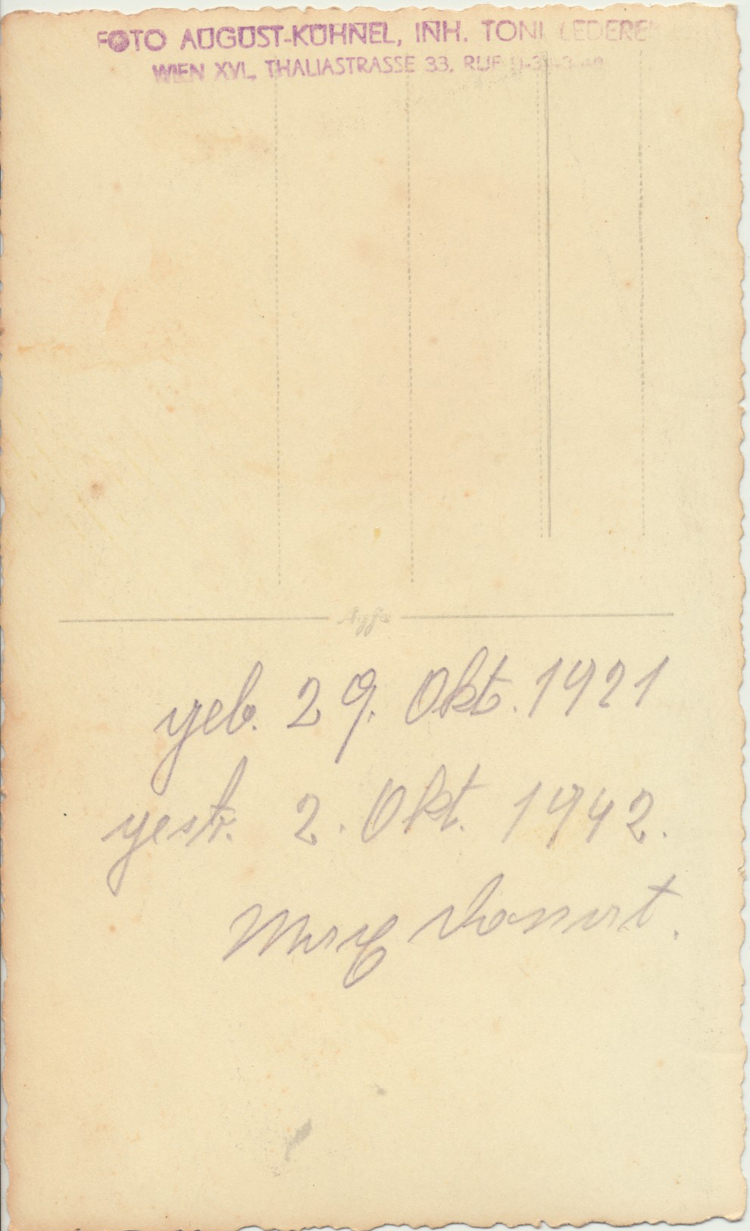 FOTO AUGUST-KÜHNEL, INH. TONI LEDERE
WIEN XVI., THALIASTRASSE 33, RUF
Agfa
geb. 29. Okt. 1921
gest. 2. Okt. 1942.